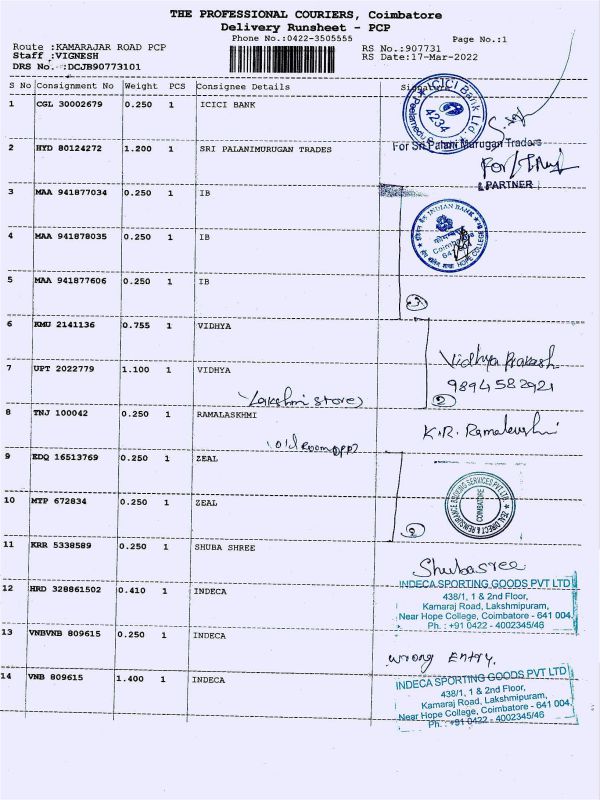 THE PROFESSIONAL COURIERS, Coimbatore
Delivery Runsheet - PCP
Phone No.:0422-3505555
Page No.:1
Route :KAMARAJAR ROAD PCP
RS No.:907731
Staff :VIGNESH
RS Date:17-Mar-2022
DRS No.:DCJB90773101
S No Consignment No Weight PCS Consignee Details
1 CGL 30002679 0.250 1 ICICI BANK
ICICI Bank Ltd
4234
2 HYD 80124272 1.200 1 SRI PALANIMURUGAN TRADES
For Sri Palani Murugan Traders
For
PARTNER
3 MAA 941877034 0.250 1 IB
INDIAN BANK
Coimbatore
HOPE COLLEGE
4 MAA 941878035 0.250 1 IB
5 MAA 941877606 0.250 1 IB
3
6 KMU 2141136 0.755 1 VIDHYA
Vidhya Prakash
7 UPT 2022779 1.100 1 VIDHYA
9894582921
2
Lakshmi stores
8 TNJ 100042 0.250 1 RAMALASKHMI
K.R. Ramalakshmi
9 EDQ 16513769 0.250 1 ZEAL
10 MTP 672834 0.250 1 ZEAL
COIMBATORE
2
11 KRR 5338589 0.250 1 SHUBA SHREE
Shubasree
12 HRD 328861502 0.410 1 INDECA
INDECA SPORTING GOODS PVT LTD
438/1, 1 & 2nd Floor,
Kamaraj Road, Lakshmipuram,
Near Hope College, Coimbatore - 641 004.
Ph. : +91 0422 - 4002345/46
13 VNBVNB 809615 0.250 1 INDECA
Wrong Entry.
14 VNB 809615 1.400 1 INDECA
INDECA SPORTING GOODS PVT LTD
438/1, 1 & 2nd Floor,
Kamaraj Road, Lakshmipuram,
Near Hope College, Coimbatore - 641 004.
Ph. : +91 0422 - 4002345/46